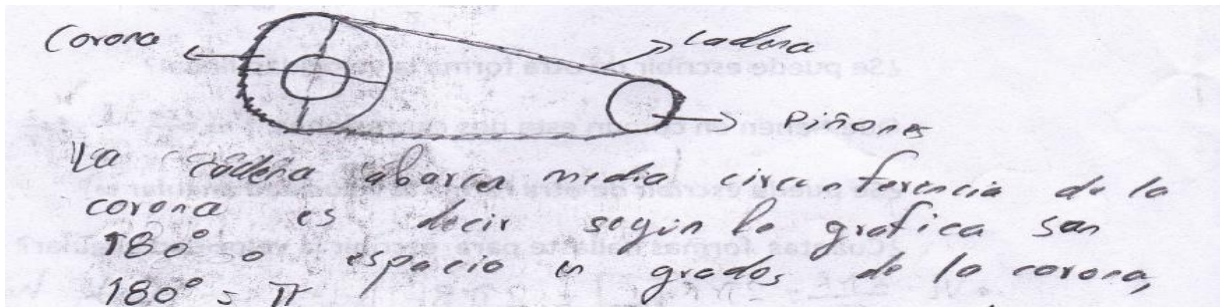 Corona
Cadena
Piñones
La cadena abarca media circunferencia de la
corona es decir según la grafica son
180° o espacio en grados de la corona,
180° = π